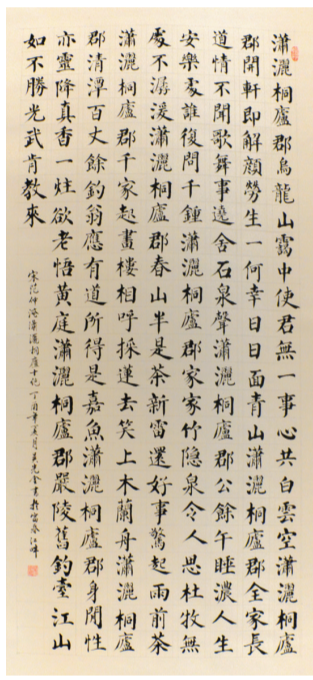 瀟灑桐廬郡烏龍山靄中使君無一事心共白雲空瀟灑桐廬
郡開軒即解顏勞生一何幸日日面青山瀟灑桐廬郡全家長
道情不聞歌舞事遶舍石泉聲瀟灑桐廬郡公餘午睡濃人生
安樂處誰復問千鍾瀟灑桐廬郡家家竹隱泉令人思杜牧無
處不潺湲瀟灑桐廬郡春山半是茶新雷還好事驚起雨前茶
瀟灑桐廬郡千家起畫樓相呼採蓮去笑上木蘭舟瀟灑桐廬
郡清潭百丈餘釣翁應有道所得是嘉魚瀟灑桐廬郡身閒性
亦靈降真香一炷欲老悟黃庭瀟灑桐廬郡嚴陵舊釣臺江山
如不勝光武肯教來
宋范仲淹瀟灑桐廬十絕丁酉年夏月書於富春江畔